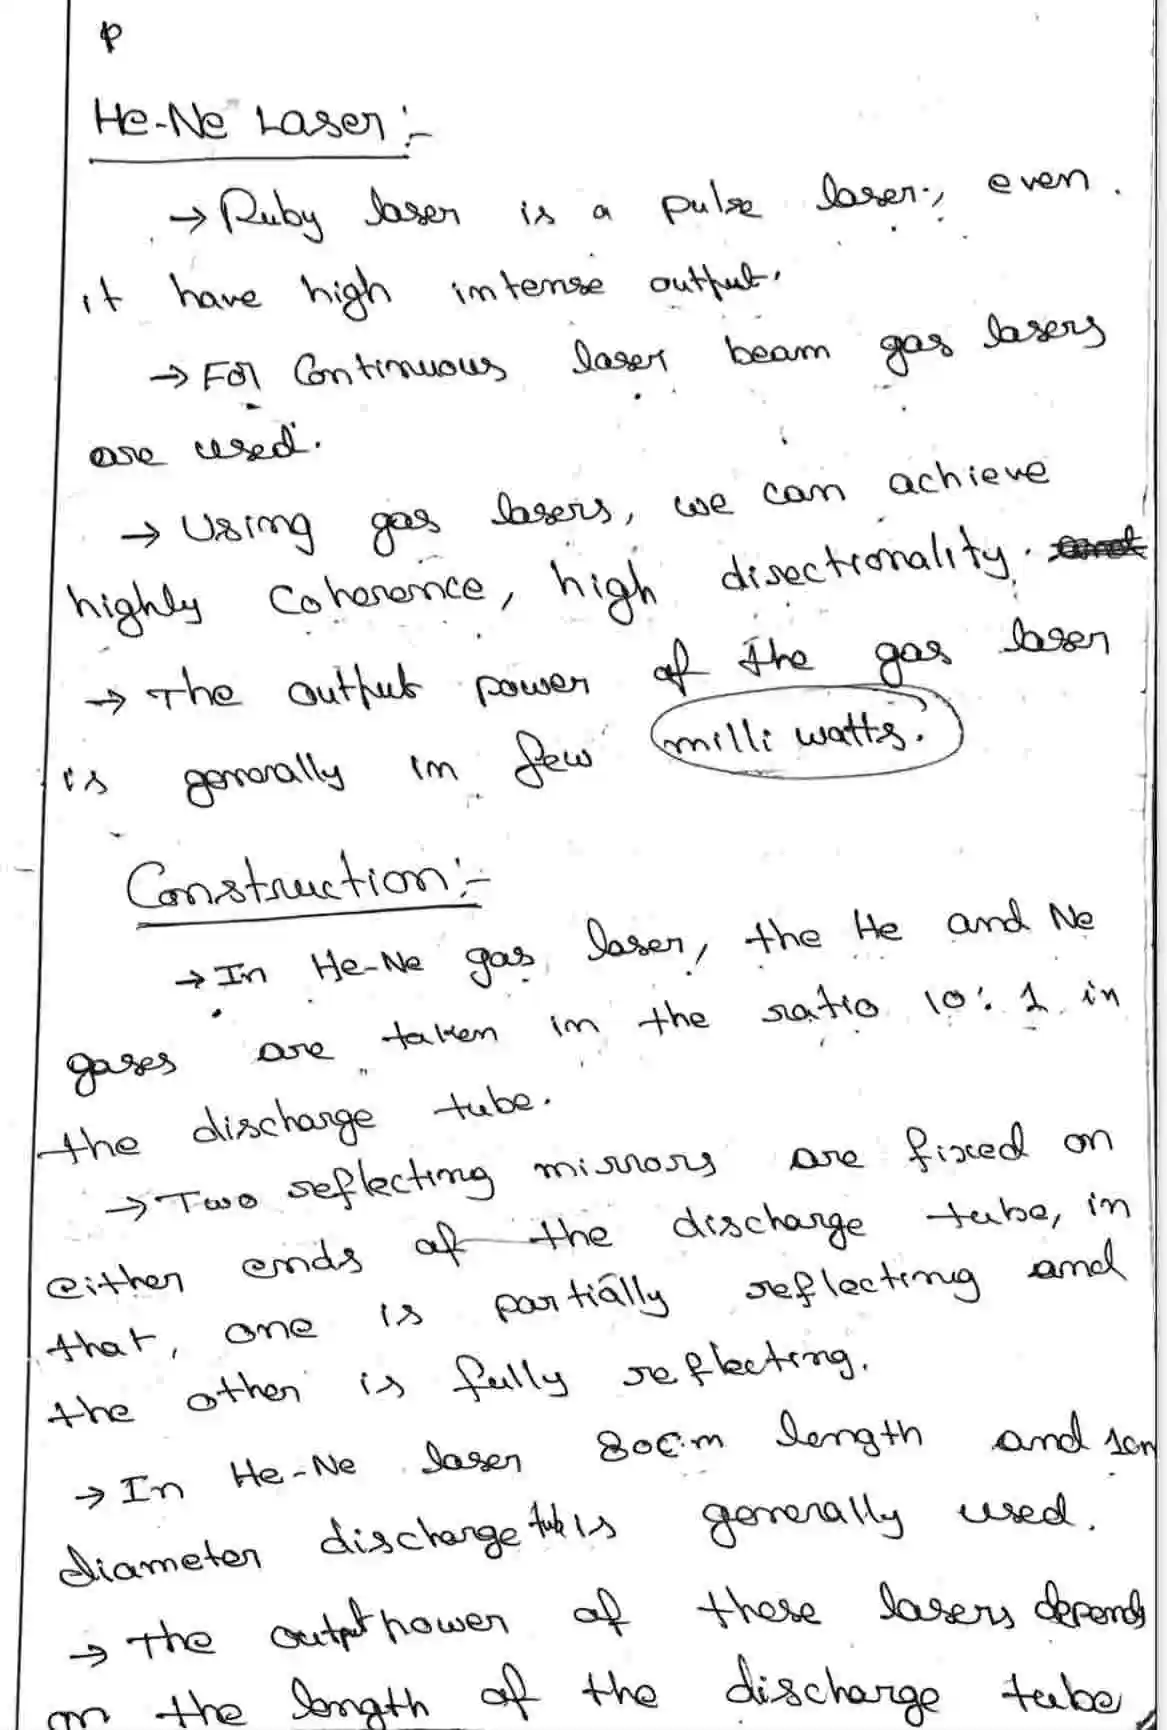 p
He-Ne Laser :-
→ Ruby laser is a pulse laser, even
it have high intense output.
→ For Continuous laser beam gas lasers
are used.
→ Using gas lasers, we can achieve
highly Coherence, high directionality.
→ The output power of the gas laser
is generally in few milli watts.
Construction :-
→ In He-Ne gas laser, the He and Ne
gases are taken in the ratio 10:1 in
the discharge tube.
→ Two reflecting mirrors are fixed on
either ends of the discharge tube, in
that, one is partially reflecting and
the other is fully reflecting.
→ In He-Ne laser 80c.m length and 1cm
diameter discharge tube is generally used.
→ The output power of these lasers depends
on the length of the discharge tube